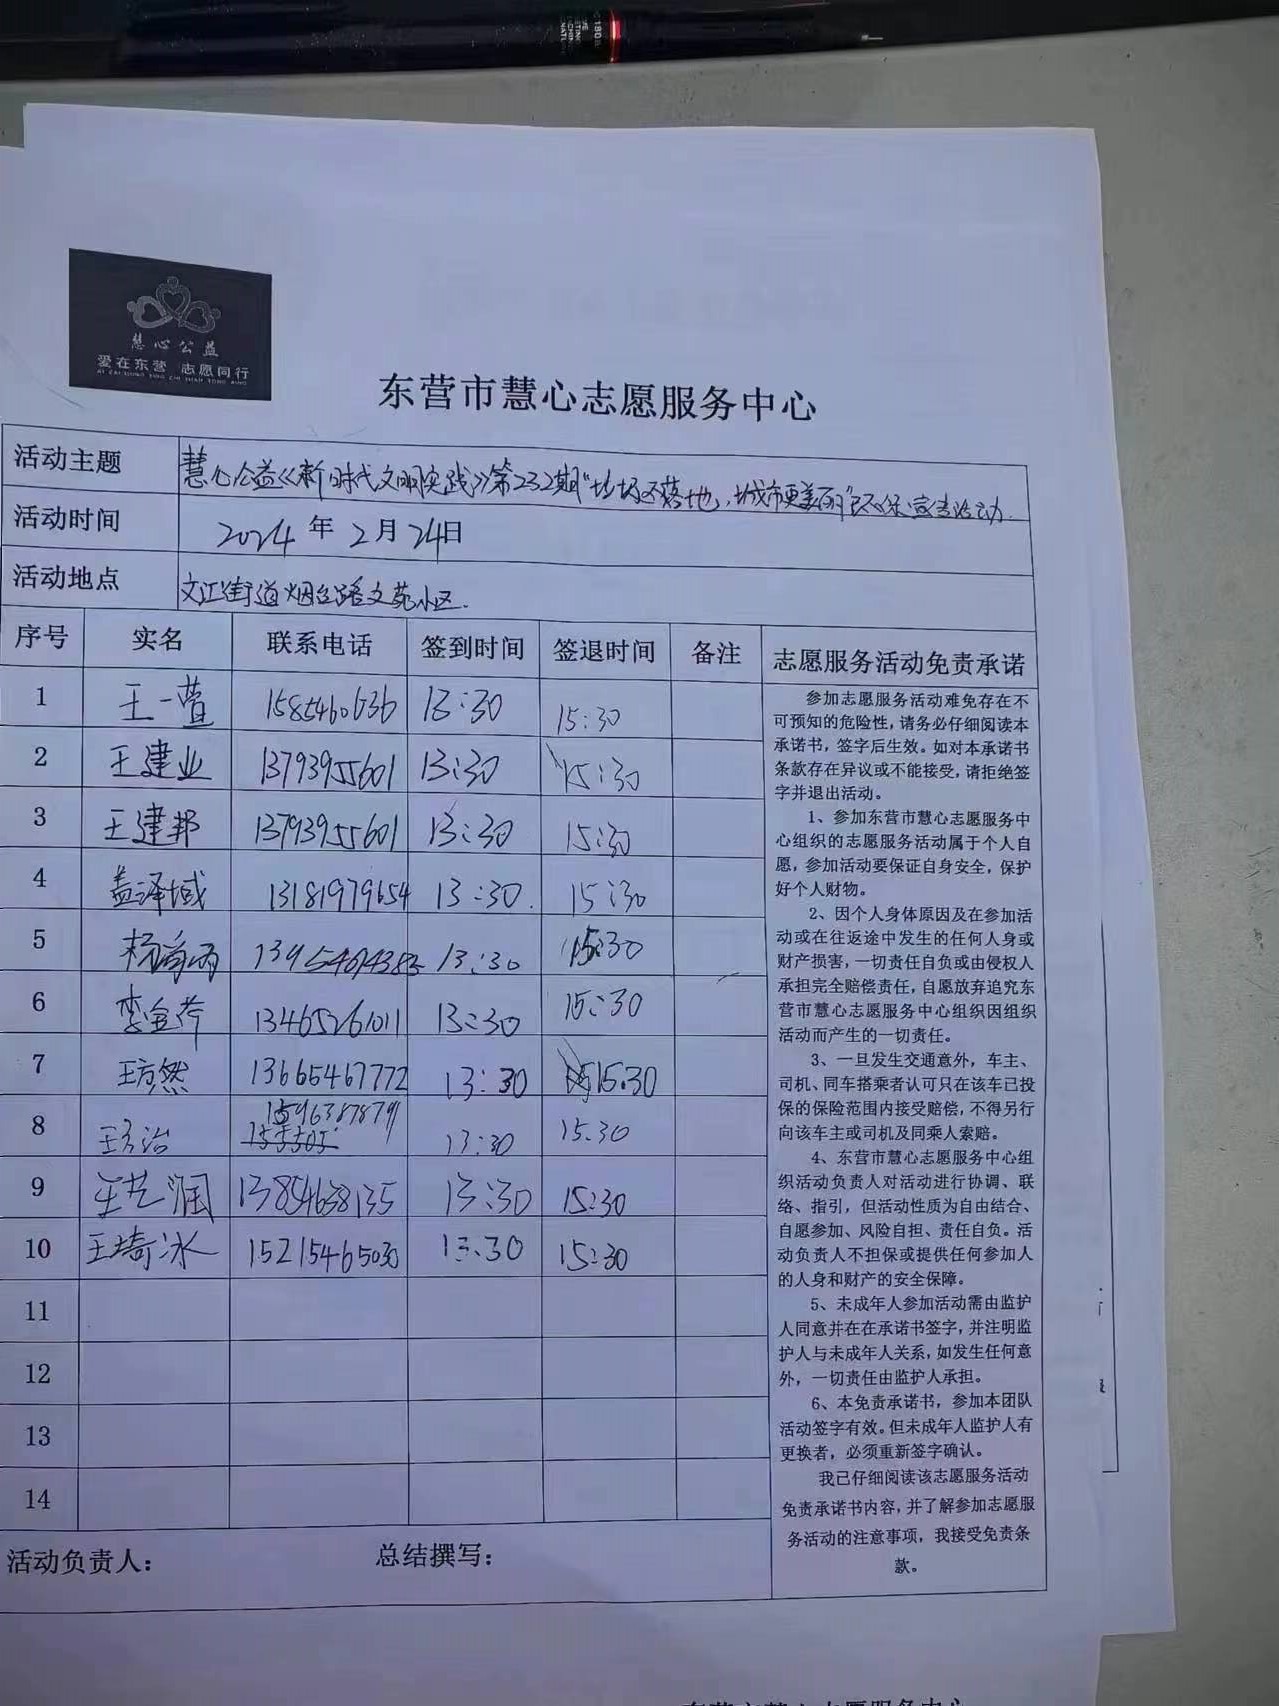 慧心公益
爱在东营 志愿同行
AI ZAI DONG YING ZHI YUAN TONG XING
东营市慧心志愿服务中心
活动主题 慧心公益《新时代文明实践》第232期"垃圾不落地，城市更美丽"环保宣传活动.
活动时间 2024 年 2 月 24日
活动地点 文汇街道烟台路文苑小区.
序号 实名 联系电话 签到时间 签退时间 备注 志愿服务活动免责承诺
1 王一萱 13:30 15:30
2 王建业 13793955601 13:30 15:30
3 王建邦 13793955601 13:30 15:30
4 盖泽域 13181979654 13:30. 15:30
5 13:30 15:30
6 李金 13465261011 13:30 15:30
7 13665467772 13:30 15:30
8 15963878791 13:30 15:30
9 王艺润 13854638135 13:30 15:30
10 王琦冰 15215465030 13:30 15:30
11
12
13
14
参加志愿服务活动难免存在不
可预知的危险性，请务必仔细阅读本
承诺书，签字后生效。如对本承诺书
条款存在异议或不能接受，请拒绝签
字并退出活动。
1、参加东营市慧心志愿服务中
心组织的志愿服务活动属于个人自
愿，参加活动要保证自身安全，保护
好个人财物。
2、因个人身体原因及在参加活
动或在往返途中发生的任何人身或
财产损害，一切责任自负或由侵权人
承担完全赔偿责任，自愿放弃追究东
营市慧心志愿服务中心组织因组织
活动而产生的一切责任。
3、一旦发生交通意外，车主、
司机、同车搭乘者认可只在该车已投
保的保险范围内接受赔偿，不得另行
向该车主或司机及同乘人索赔。
4、东营市慧心志愿服务中心组
织活动负责人对活动进行协调、联
络、指引，但活动性质为自由结合、
自愿参加、风险自担、责任自负。活
动负责人不担保或提供任何参加人
的人身和财产的安全保障。
5、未成年人参加活动需由监护
人同意并在在承诺书签字，并注明监
护人与未成年人关系，如发生任何意
外，一切责任由监护人承担。
6、本免责承诺书，参加本团队
活动签字有效。但未成年人监护人有
更换者，必须重新签字确认。
我已仔细阅读该志愿服务活动
免责承诺书内容，并了解参加志愿服
务活动的注意事项，我接受免责条
款。
活动负责人： 总结撰写：
东营市慧心志愿服务中心